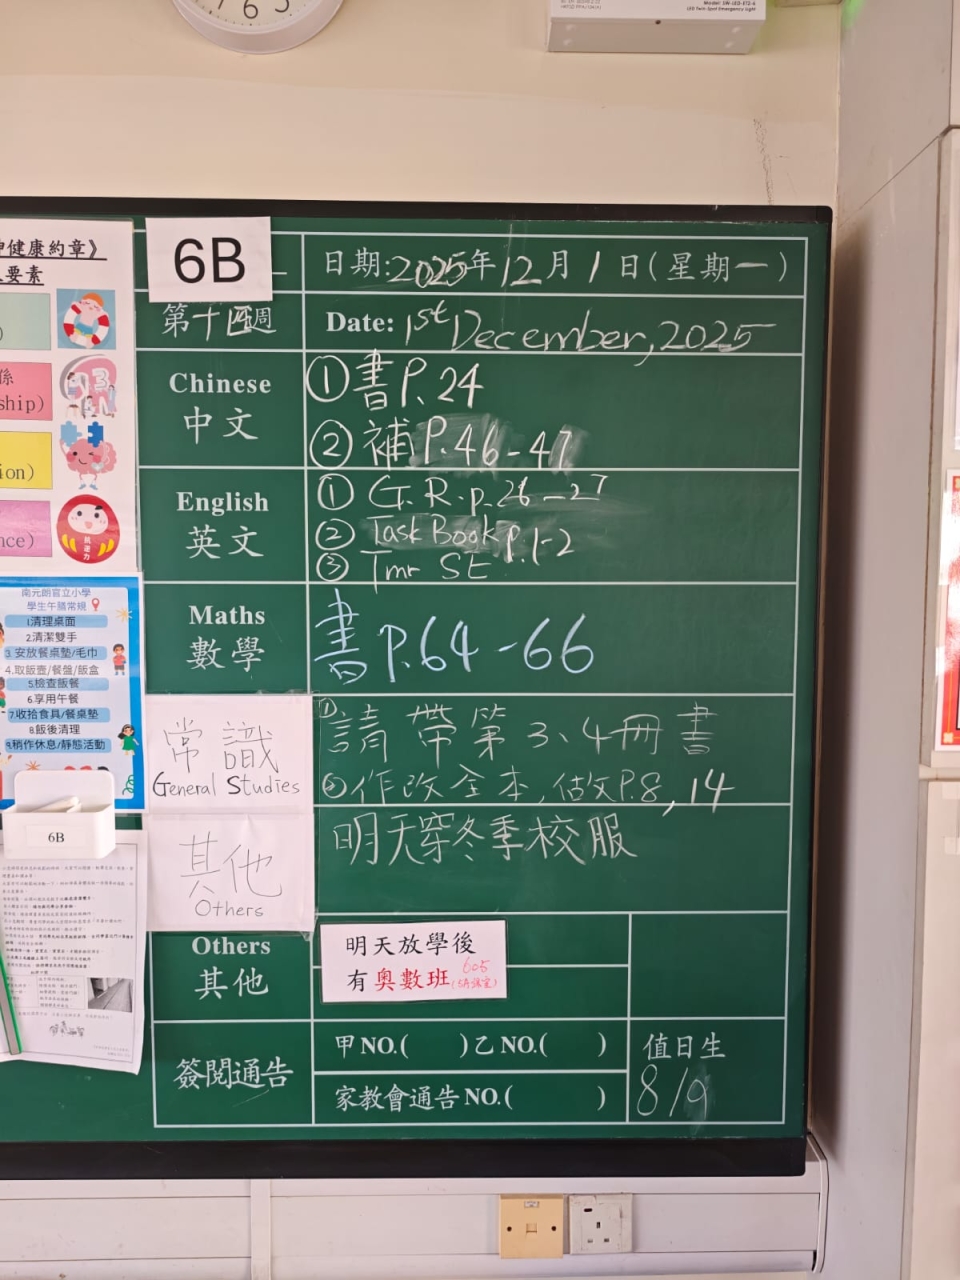 6 5
Model: SW-LED-ET2-6
LED Twin Spot Emergency Light
健康約章》
要素
係
ship)
ion)
nce)
抗逆力
南元朗官立小學
學生午膳常規
1.清理桌面
2.清潔雙手
3.安放餐桌墊/毛巾
4.取飯壺/餐盤/飯盒
5.檢查飯餐
6.享用午餐
7.收拾食具/餐桌墊
8.飯後清理
9.稍作休息/靜態活動
6B
6B
第十四週
日期:2025年12月1日(星期一)
Date: 1st December, 2025
Chinese
中文
①書P.24
②補P.46-47
English
英文
① G.R. p.26-27
② Task Book p.1-2
③ Tmr SE
Maths
數學
書P.64-66
常識
General Studies
①請帶第3、4冊書
②作改全本,做文P.8,14
其他
Others
明天穿冬季校服
Others
其他
明天放學後
有奧數班 605
簽閱通告
甲NO.( )乙NO.( )
家教會通告NO.( )
值日生
8/9